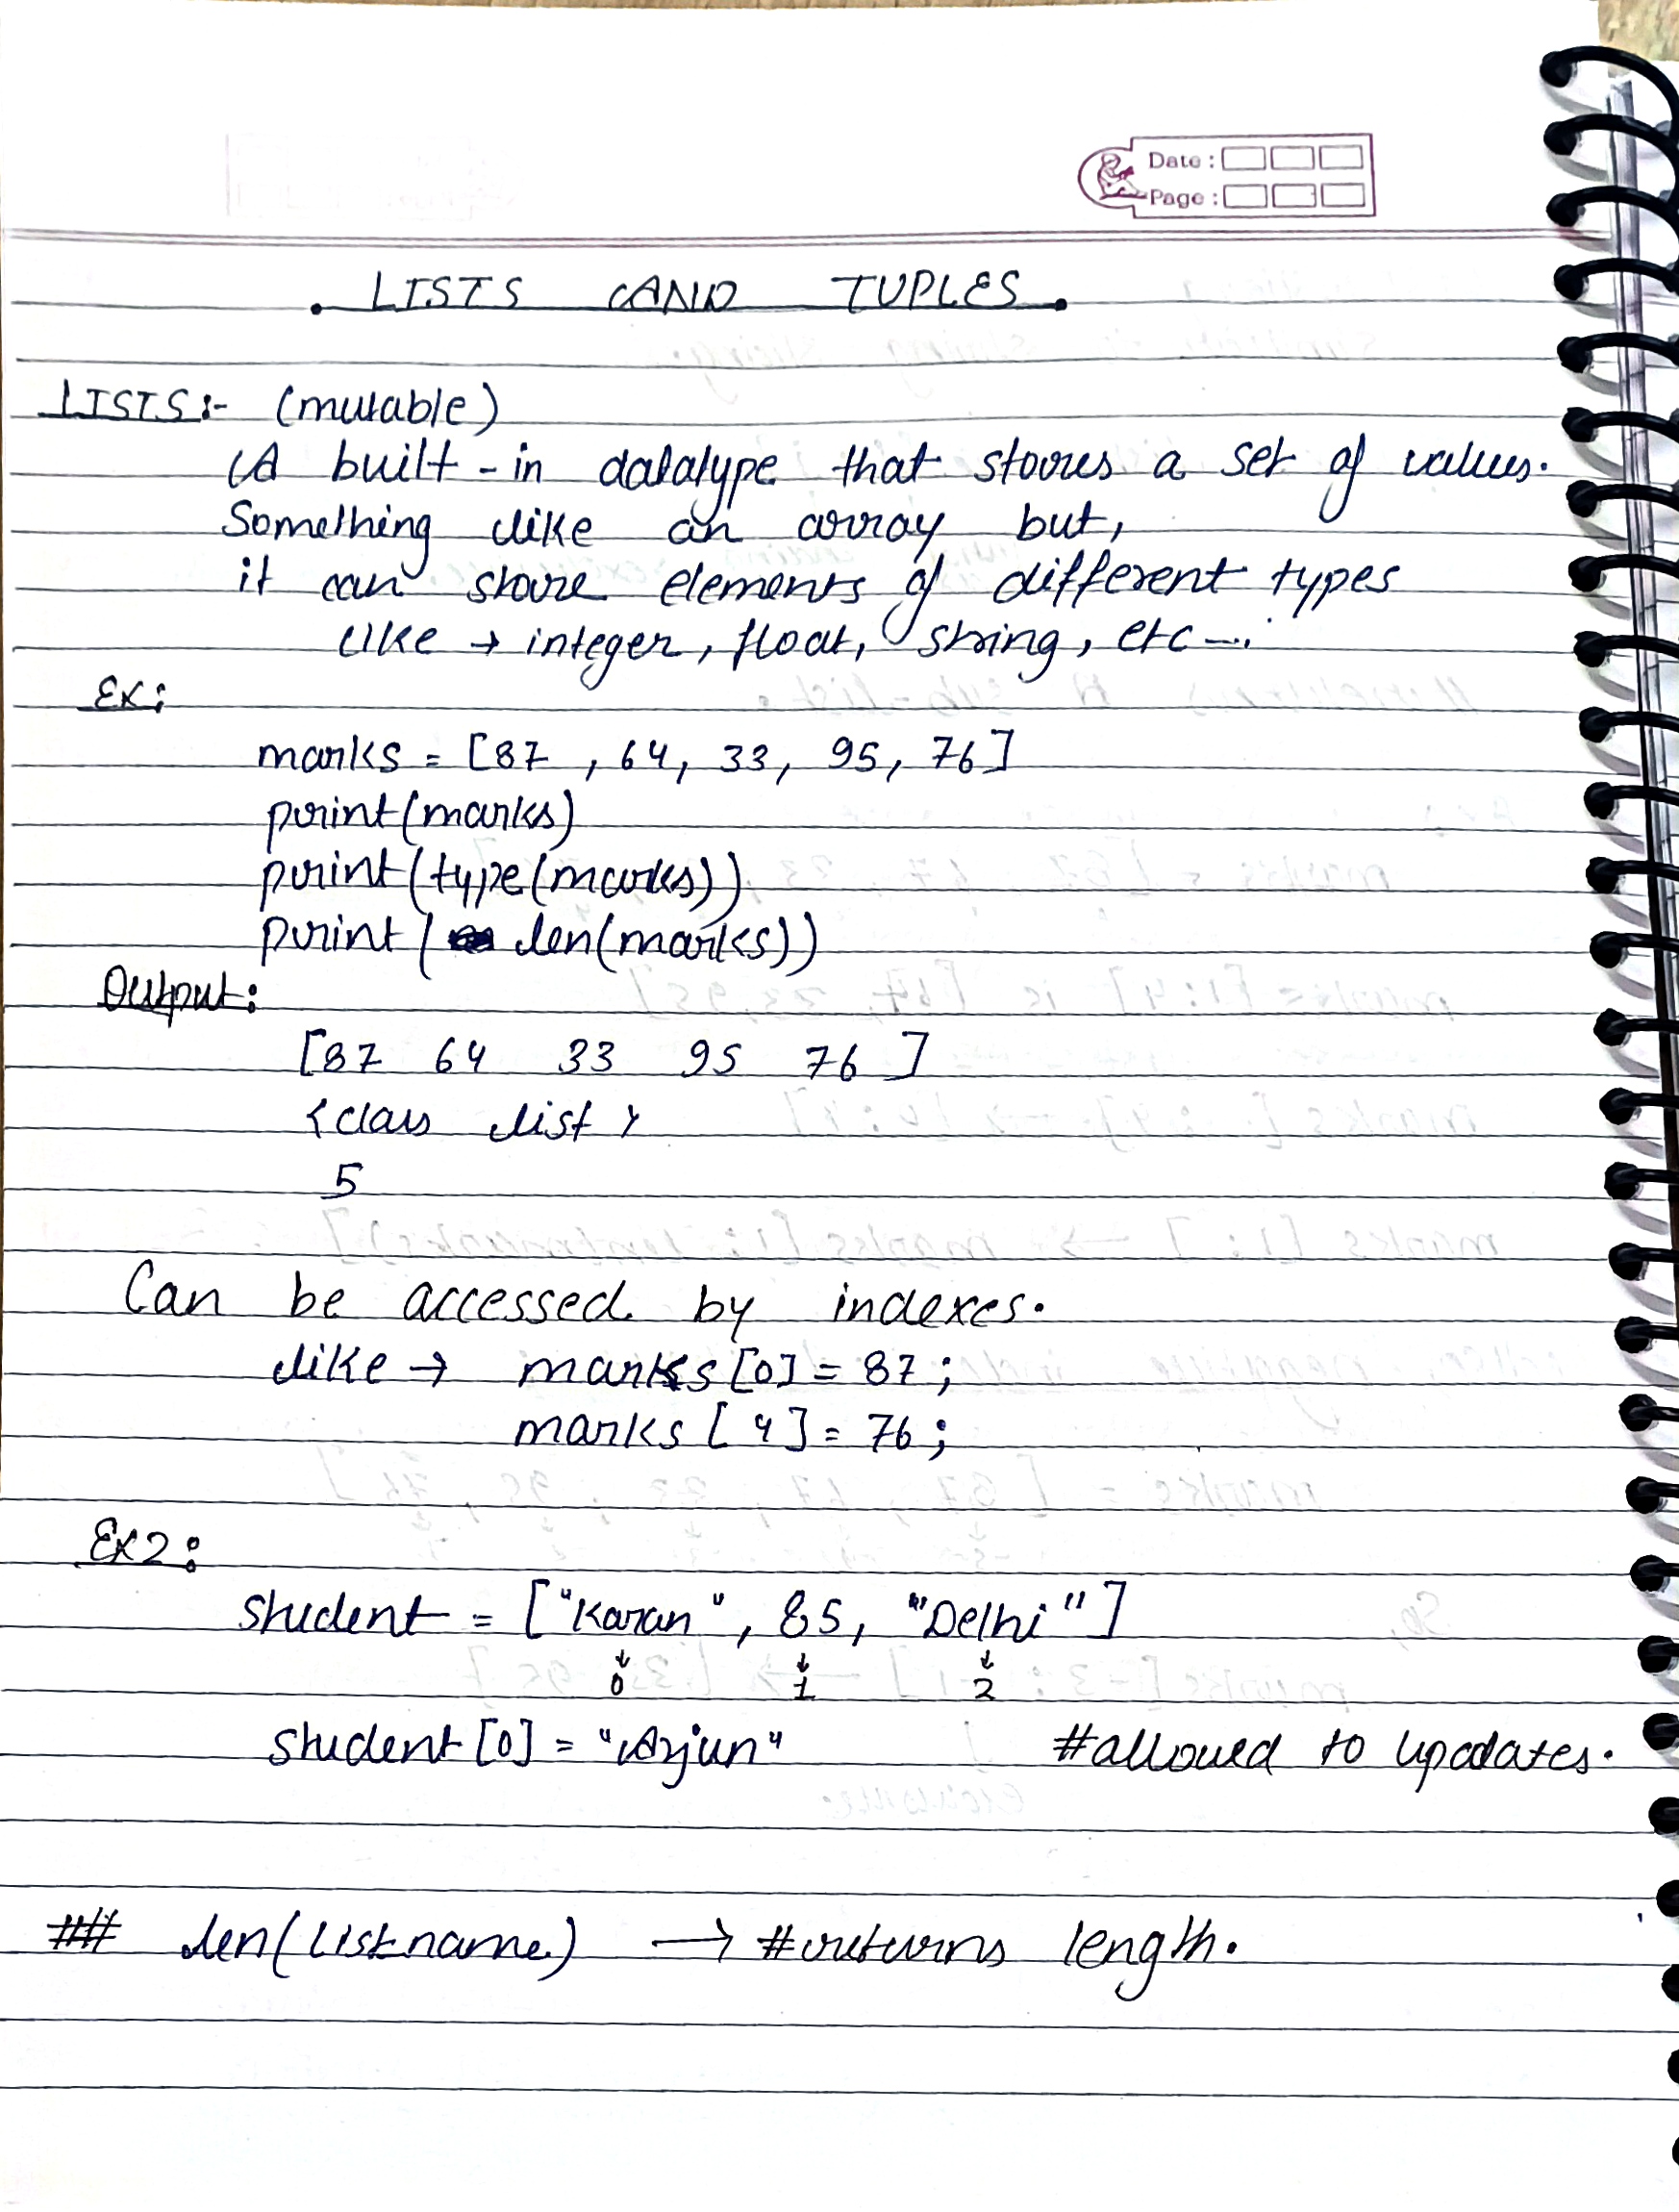 Date :
Page :
LISTS AND TUPLES
LISTS :- (mutable)
A built-in datatype that stores a set of values.
Something like an array but,
it can store elements of different types
like → integer, float, string, etc...
Ex:
marks = [87 , 64, 33, 95, 76]
print(marks)
print(type(marks))
print( len(marks))
Output:
[87 64 33 95 76 ]
<class list>
5
Can be accessed by indexes.
like → marks[0] = 87 ;
marks [ 4] = 76 ;
Ex2:
student = ["Karan", 85, "Delhi"]
↓ ↓ ↓
0 1 2
student [0] = "Arjun" #allowed to updates.
## len(listname) → #returns length.